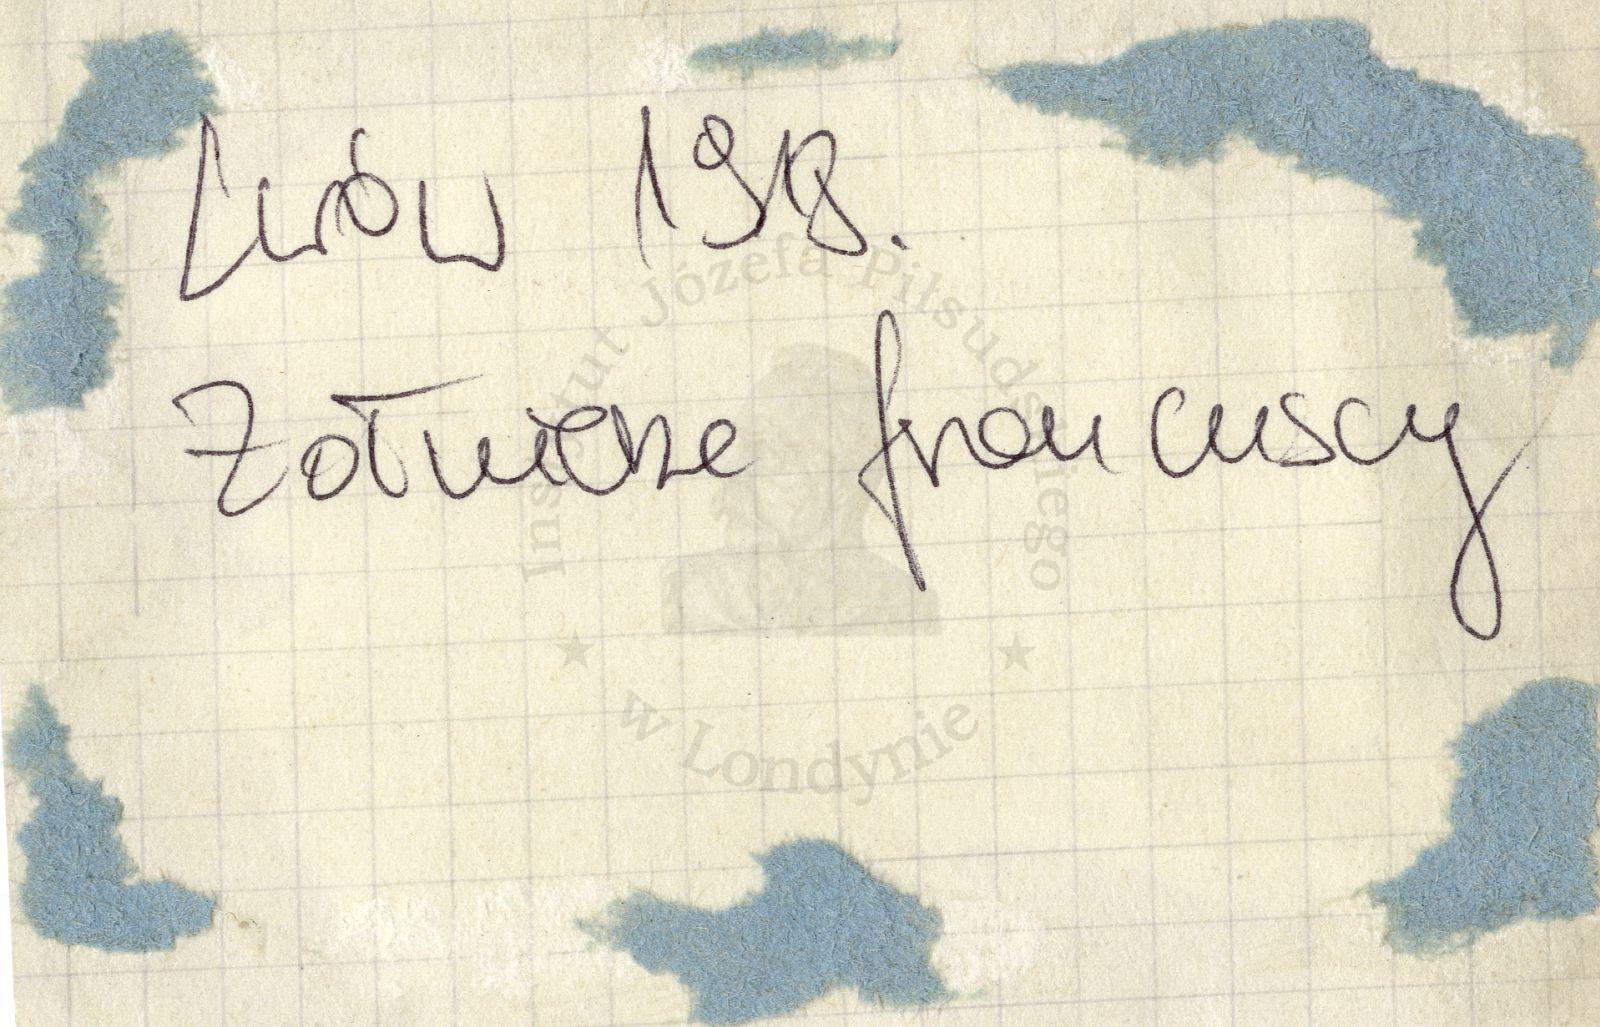 Lwów 1918.
Żołnierze francuscy
Instytut Józefa Piłsudskiego
★ w Londynie ★